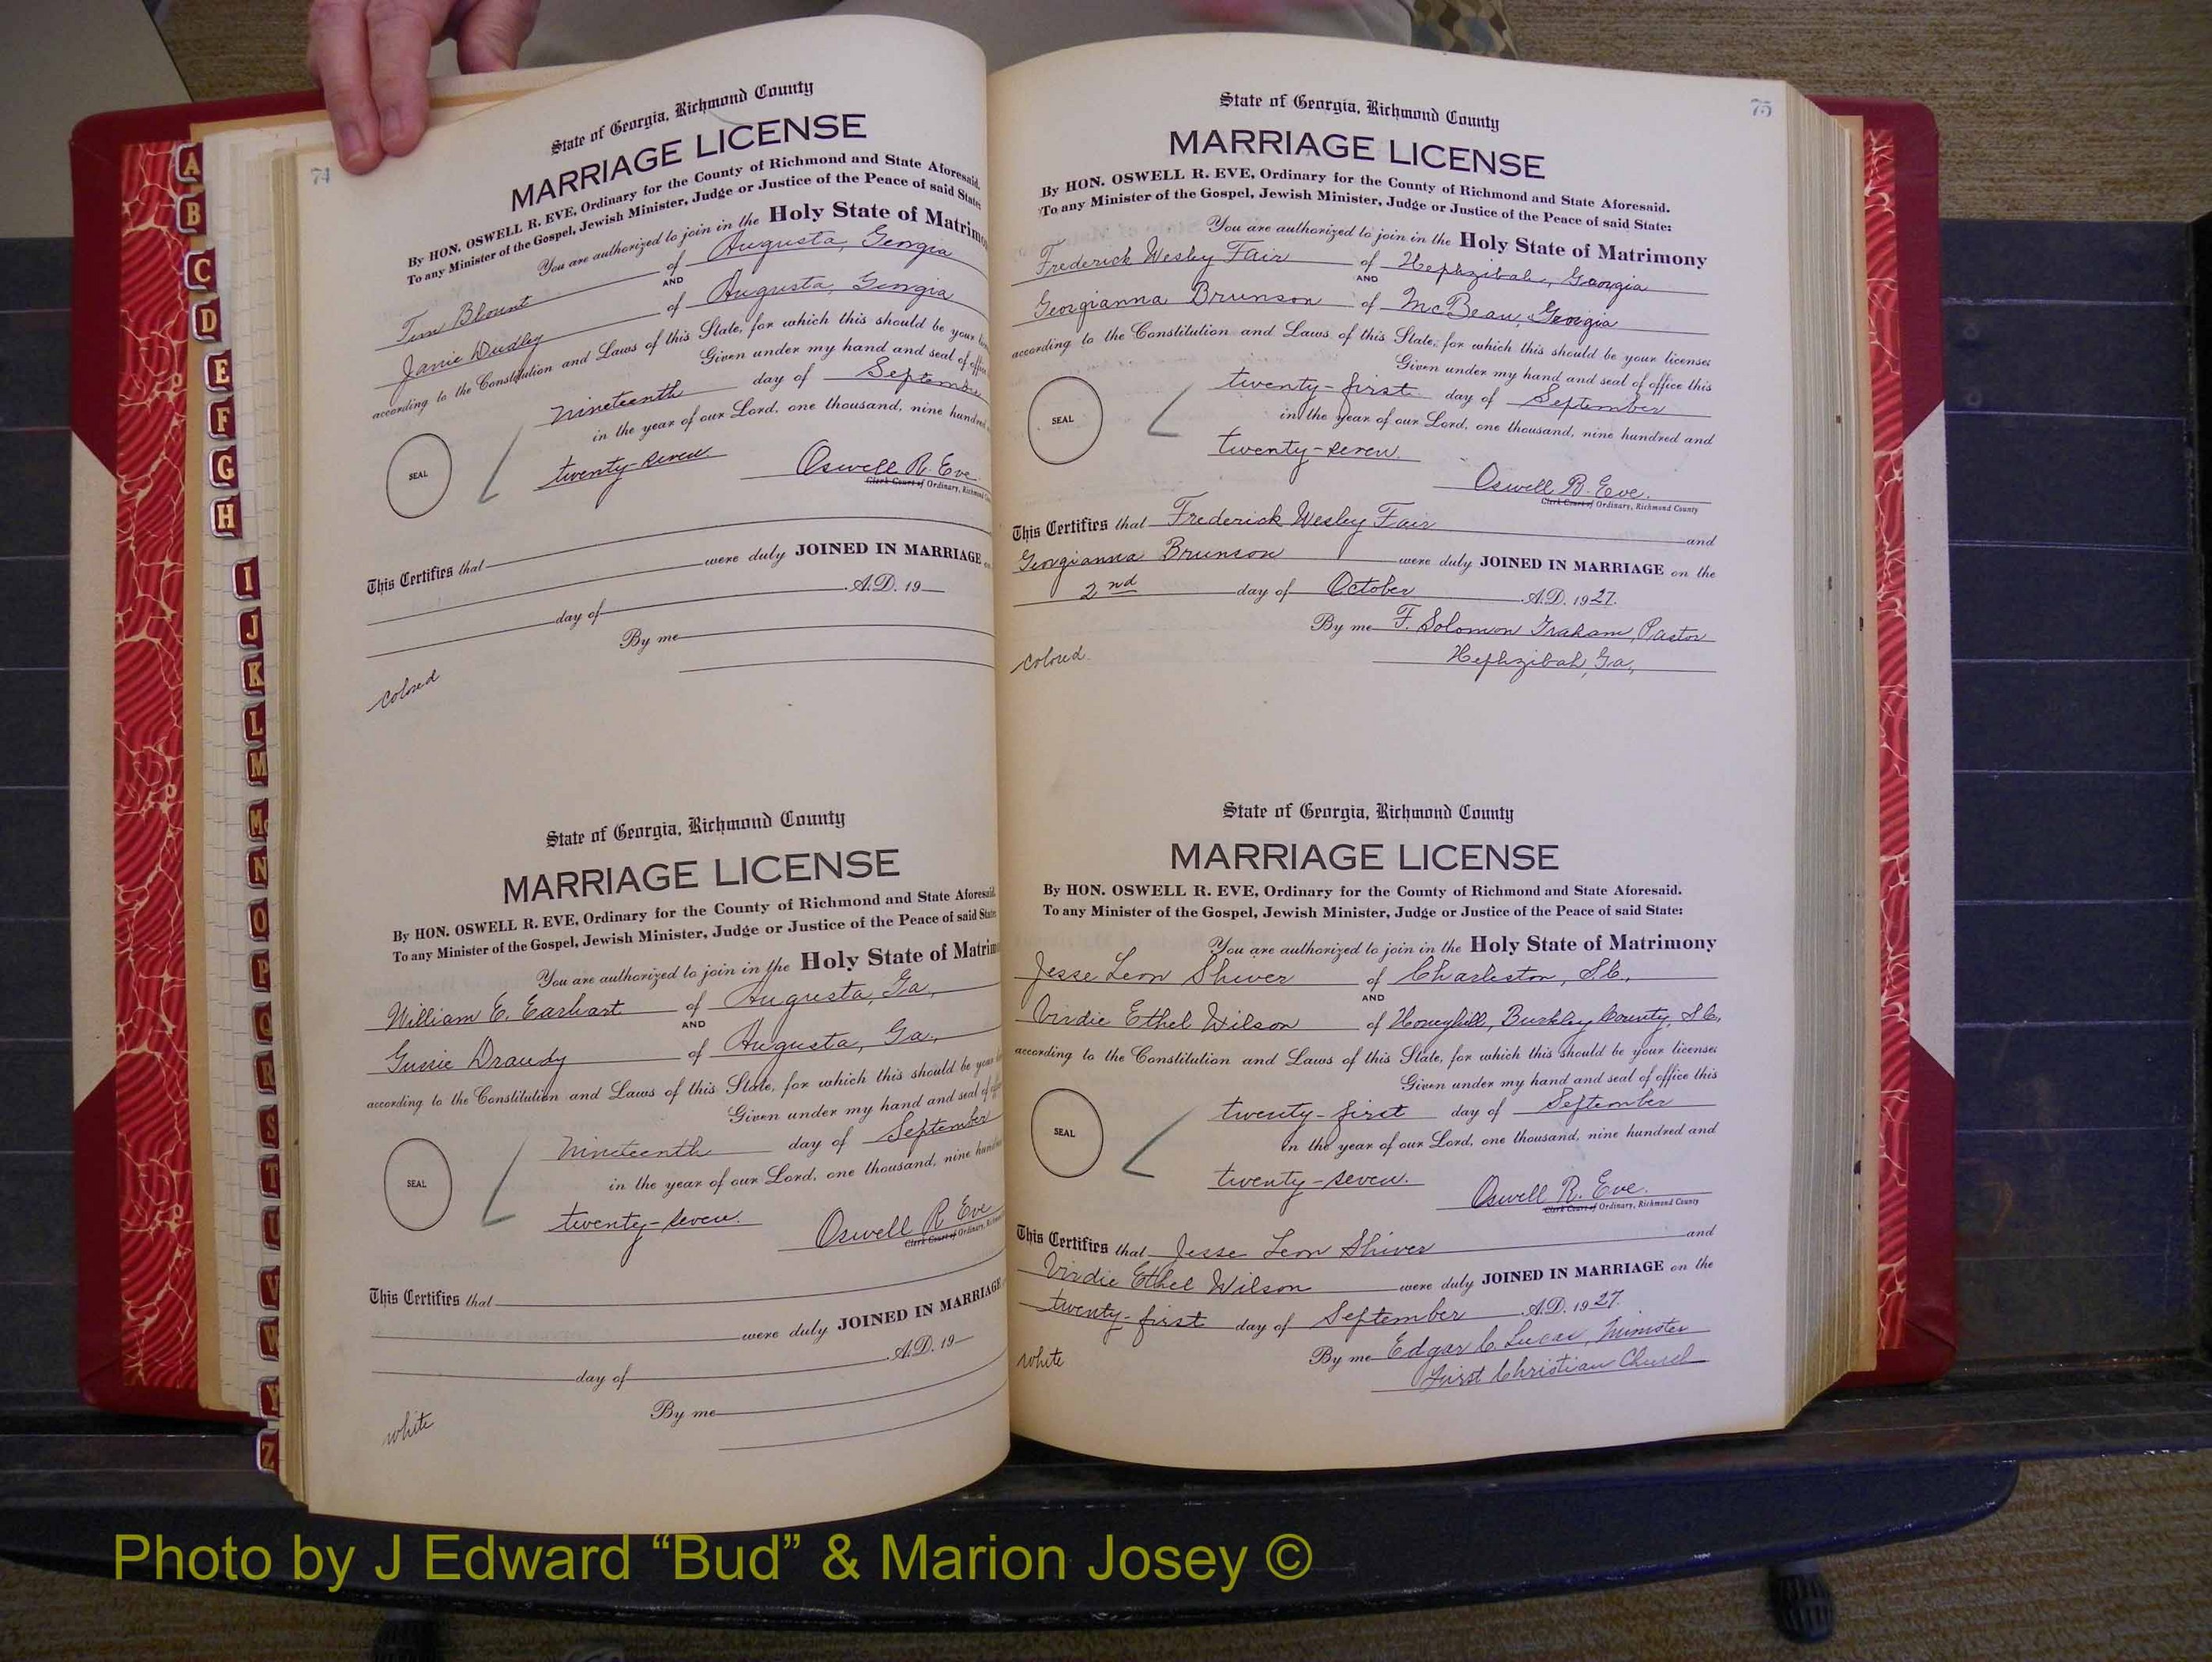 74
State of Georgia, Richmond County
MARRIAGE LICENSE
By HON. OSWELL R. EVE, Ordinary for the County of Richmond and State Aforesaid.
To any Minister of the Gospel, Jewish Minister, Judge or Justice of the Peace of said State
You are authorized to join in the Holy State of Matrimo
Tim Blount of Augusta, Georgia
AND
Janie Dudley of Augusta, Georgia
according to the Constitution and Laws of this State, for which this should be your
Given under my hand and seal of
nineteenth day of Septembe
in the year of our Lord, one thousand, nine hundred
SEAL
twenty-seven
Oswell R. Eve
Clerk Court of Ordinary, Richmond
This Certifies that
were duly JOINED IN MARRIAGE
day of A.D. 19
By me
colored
State of Georgia, Richmond County
MARRIAGE LICENSE
By HON. OSWELL R. EVE, Ordinary for the County of Richmond and State Aforesaid
To any Minister of the Gospel, Jewish Minister, Judge or Justice of the Peace of said State
You are authorized to join in the Holy State of Matrim
William E. Earhart of Augusta, Ga,
AND
Gussie Draudy of Augusta, Ga,
according to the Constitution and Laws of this State, for which this should be your
Given under my hand and seal of
Nineteenth day of September
in the year of our Lord, one thousand, nine hund
SEAL
twenty-seven.
Oswell R Eve
Clerk Court of Ordinary,
This Certifies that
were duly JOINED IN MARRIAGE
day of A.D. 19
By me
white
75
State of Georgia, Richmond County
MARRIAGE LICENSE
By HON. OSWELL R. EVE, Ordinary for the County of Richmond and State Aforesaid.
To any Minister of the Gospel, Jewish Minister, Judge or Justice of the Peace of said State:
You are authorized to join in the Holy State of Matrimony
Frederick Wesley Fair of Hephzibah, Georgia
AND
Georgianna Brunson of McBean, Georgia
according to the Constitution and Laws of this State, for which this should be your license:
Given under my hand and seal of office this
twenty-first day of September
in the year of our Lord, one thousand, nine hundred and
SEAL
twenty-seven.
Oswell R. Eve.
Clerk Court of Ordinary, Richmond County
This Certifies that Frederick Wesley Fair and
Georgianna Brunson were duly JOINED IN MARRIAGE on the
2nd day of October A.D. 1927.
By me F. Solomon Graham, Pastor
Hephzibah, Ga,
colored
State of Georgia, Richmond County
MARRIAGE LICENSE
By HON. OSWELL R. EVE, Ordinary for the County of Richmond and State Aforesaid.
To any Minister of the Gospel, Jewish Minister, Judge or Justice of the Peace of said State:
You are authorized to join in the Holy State of Matrimony
Jesse Leon Shiver of Charleston, S.C.,
AND
Virdie Ethel Wilson of Honeyhill, Burkley County, S.C,
according to the Constitution and Laws of this State, for which this should be your license:
Given under my hand and seal of office this
twenty-first day of September
in the year of our Lord, one thousand, nine hundred and
SEAL
twenty-seven.
Oswell R. Eve.
Clerk Court of Ordinary, Richmond County
This Certifies that Jesse Leon Shiver and
Virdie Ethel Wilson were duly JOINED IN MARRIAGE on the
twenty-first day of September A.D. 1927.
By me Edgar C. Lucas, Minister
First Christian Church
white
A
B
C
D
E
F
G
H
I
J
K
L
M
Mc
N
O
P
Q
R
S
T
U
V
W
Y
Z
Photo by J Edward “Bud” & Marion Josey ©